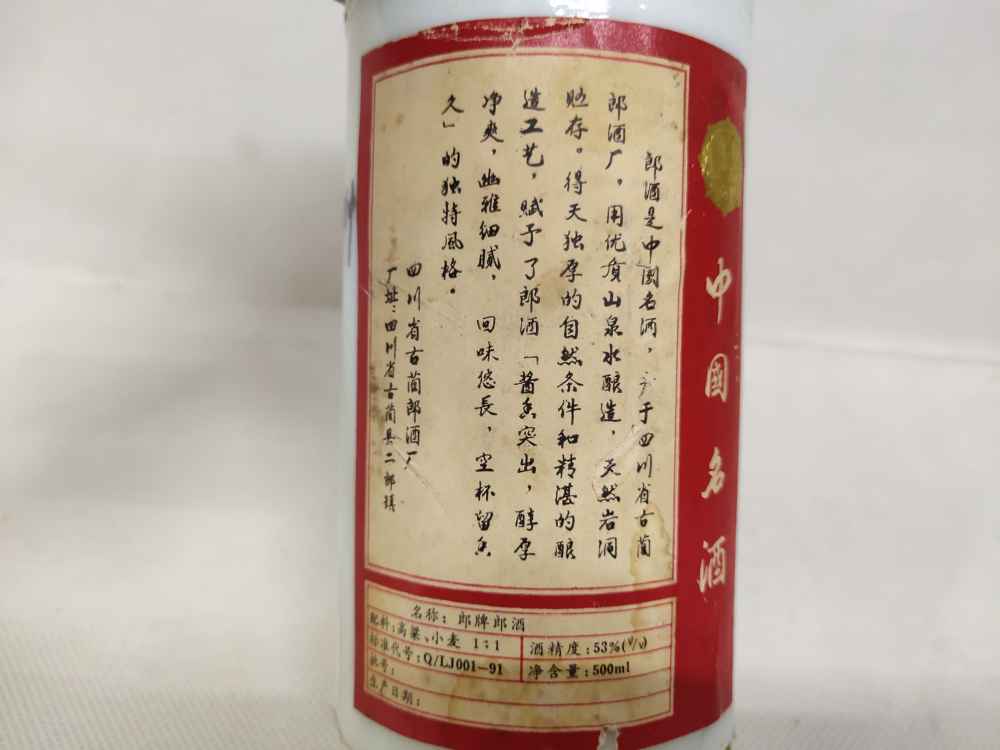 中國名酒
郎酒是中國名酒，产于四川省古蔺
郎酒厂，用优质山泉水酿造，天然岩洞
贮存。得天独厚的自然条件和精湛的酿
造工艺，赋予了郎酒「酱香突出，醇厚
净爽，幽雅细腻，回味悠長，空杯留香
久」的独特风格。
四川省古蔺郎酒厂
厂址：四川省古蔺县二郎镇
名称：郎牌郎酒
配料：高粱、小麦 1：1
酒精度：53%(V/V)
标准代号：Q/LJ001-91
净含量：500ml
批号：
生产日期：